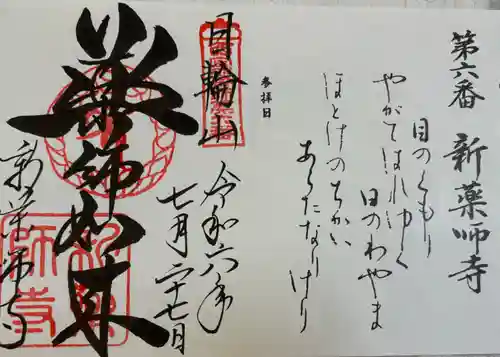 第六番 新薬師寺
目のくもり
やがてはれゆく
日のわやま
ほとけのちかい
あらたなりけり
参拝日
日輪山
令和六年
七月二十七日
薬師如来
新薬師寺